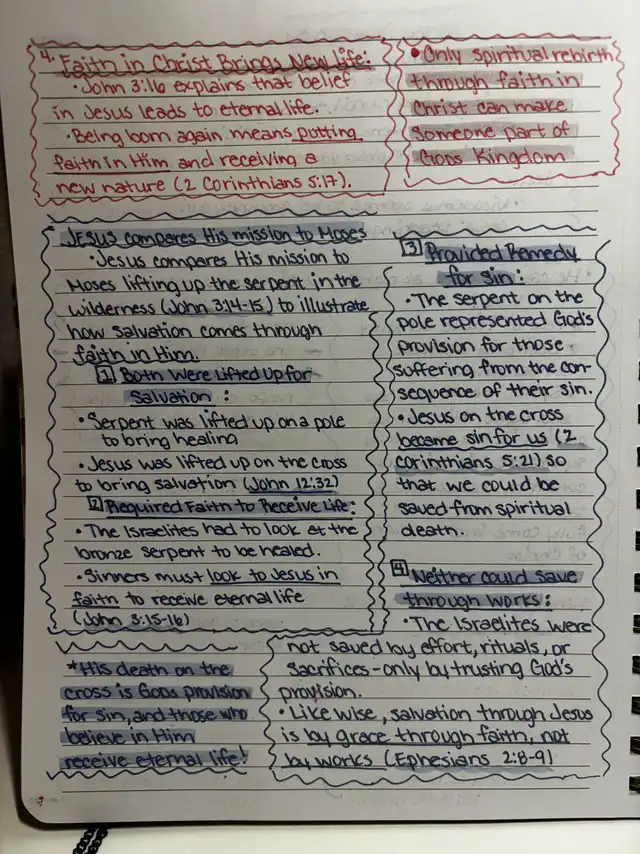 4. Faith in Christ Brings New Life:
• John 3:16 explains that belief
in Jesus leads to eternal life.
• Being born again means putting
faith in Him and receiving a
new nature (2 Corinthians 5:17).
• Only spiritual rebirth
through faith in
Christ can make
someone part of
Gods Kingdom
JESUS compares His mission to Moses
• Jesus compares His mission to
Moses lifting up the serpent in the
wilderness (John 3:14-15) to illustrate
how salvation comes through
faith in Him.
1 Both Were Lifted Up for
Salvation :
• Serpent was lifted up on a pole
to bring healing
• Jesus was lifted up on the cross
to bring salvation (John 12:32)
2 Required Faith to Receive Life:
• The Israelites had to look at the
bronze serpent to be healed.
• Sinners must look to Jesus in
faith to receive eternal life
(John 3:15-16)
*His death on the
cross is Gods provision
for sin, and those who
believe in Him
receive eternal life!
3 Provided Remedy
for sin:
• The serpent on the
pole represented God's
provision for those
suffering from the con-
sequence of their sin.
• Jesus on the cross
became sin for us (2
corinthians 5:21) so
that we could be
saved from spiritual
death.
4 Neither could save
through works:
• The Israelites were
not saved by effort, rituals, or
sacrifices - only by trusting God's
provision.
• Like wise, salvation through Jesus
is by grace through faith, not
by works (Ephesians 2:8-9)